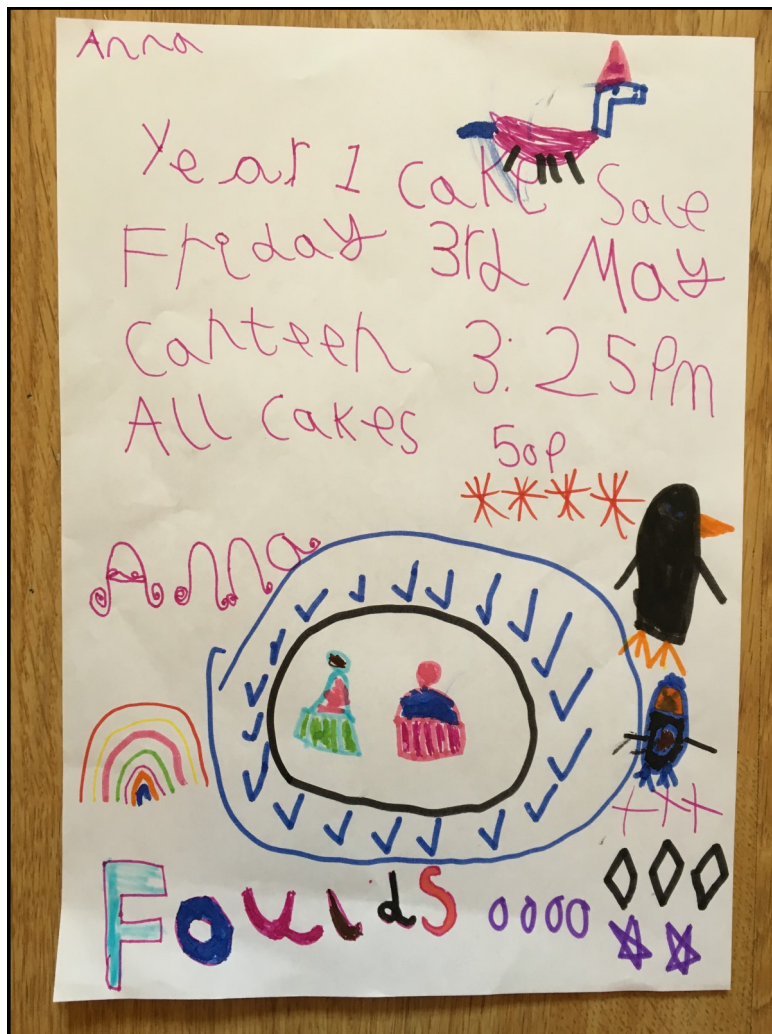 Anna
Year 1 Cake Sale
Friday 3rd May
Canteen 3:25PM
All Cakes 50P
Anna
Foulds